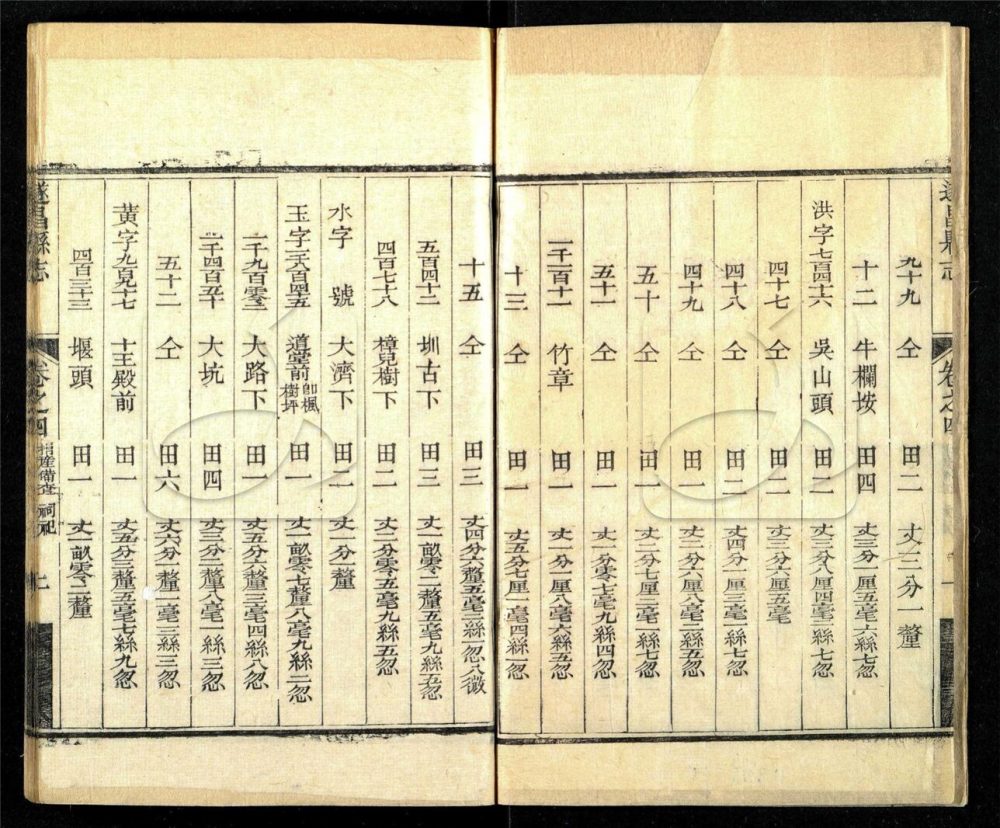 遂昌縣志 卷之四
九十九 仝 田二 丈二分一釐
十二 牛欄垵 田四 丈三分一厘五毫六絲七忽
洪字七百四十六 吳山頭 田二 丈三分八厘四毫三絲七忽
四十七 仝 田二 丈二分六厘五毫
四十八 仝 田二 丈四分一厘二毫二絲二忽
四十九 仝 田一 丈二分六厘八毫二絲五忽
五十 仝 田一 丈二分七厘二毫一絲七忽
五十一 仝 田一 丈一分零七毫九絲四忽
一千二百十一 竹章 田一 丈一分一厘八毫六絲五忽
十三 仝 田一 丈五分七厘一毫四絲一忽
十五 仝 田三 丈四分六釐五毫三絲一忽八微
五百四十二 圳古下 田三 丈一畝零二釐五毫九絲五忽
四百七十八 樟兒樹下 田二 丈二分零五毫九絲五忽
水字 號 大濟下 田二 丈一分一釐
玉字二千八百四十五 道堂前即楓樹坪 田一 丈一畝零七釐八毫九絲二忽
一千九百零二 大路下 田一 丈五分六釐三毫四絲八忽
二千四百五十 大坑 田四 丈三分二釐八毫一絲三忽
五十二 仝 田六 丈六分一釐一毫三絲三忽
黃字九百九十七 十王殿前 田一 丈五分三釐五毫七絲九忽
四百三十三 堰頭 田一 丈一畝零二釐
遂昌縣志 卷之四 祠祀